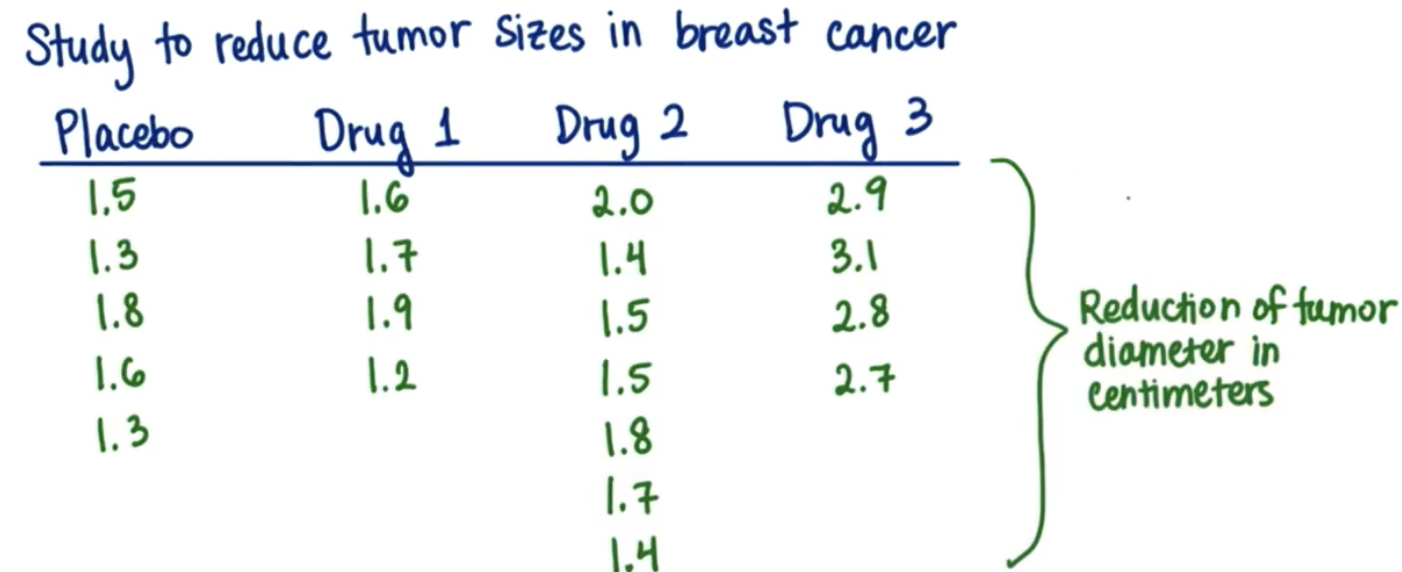 Study to reduce tumor sizes in breast cancer
Placebo Drug 1 Drug 2 Drug 3
1.5 1.6 2.0 2.9
1.3 1.7 1.4 3.1
1.8 1.9 1.5 2.8
1.6 1.2 1.5 2.7
1.3 1.8
1.7
1.4
Reduction of tumor
diameter in
centimeters